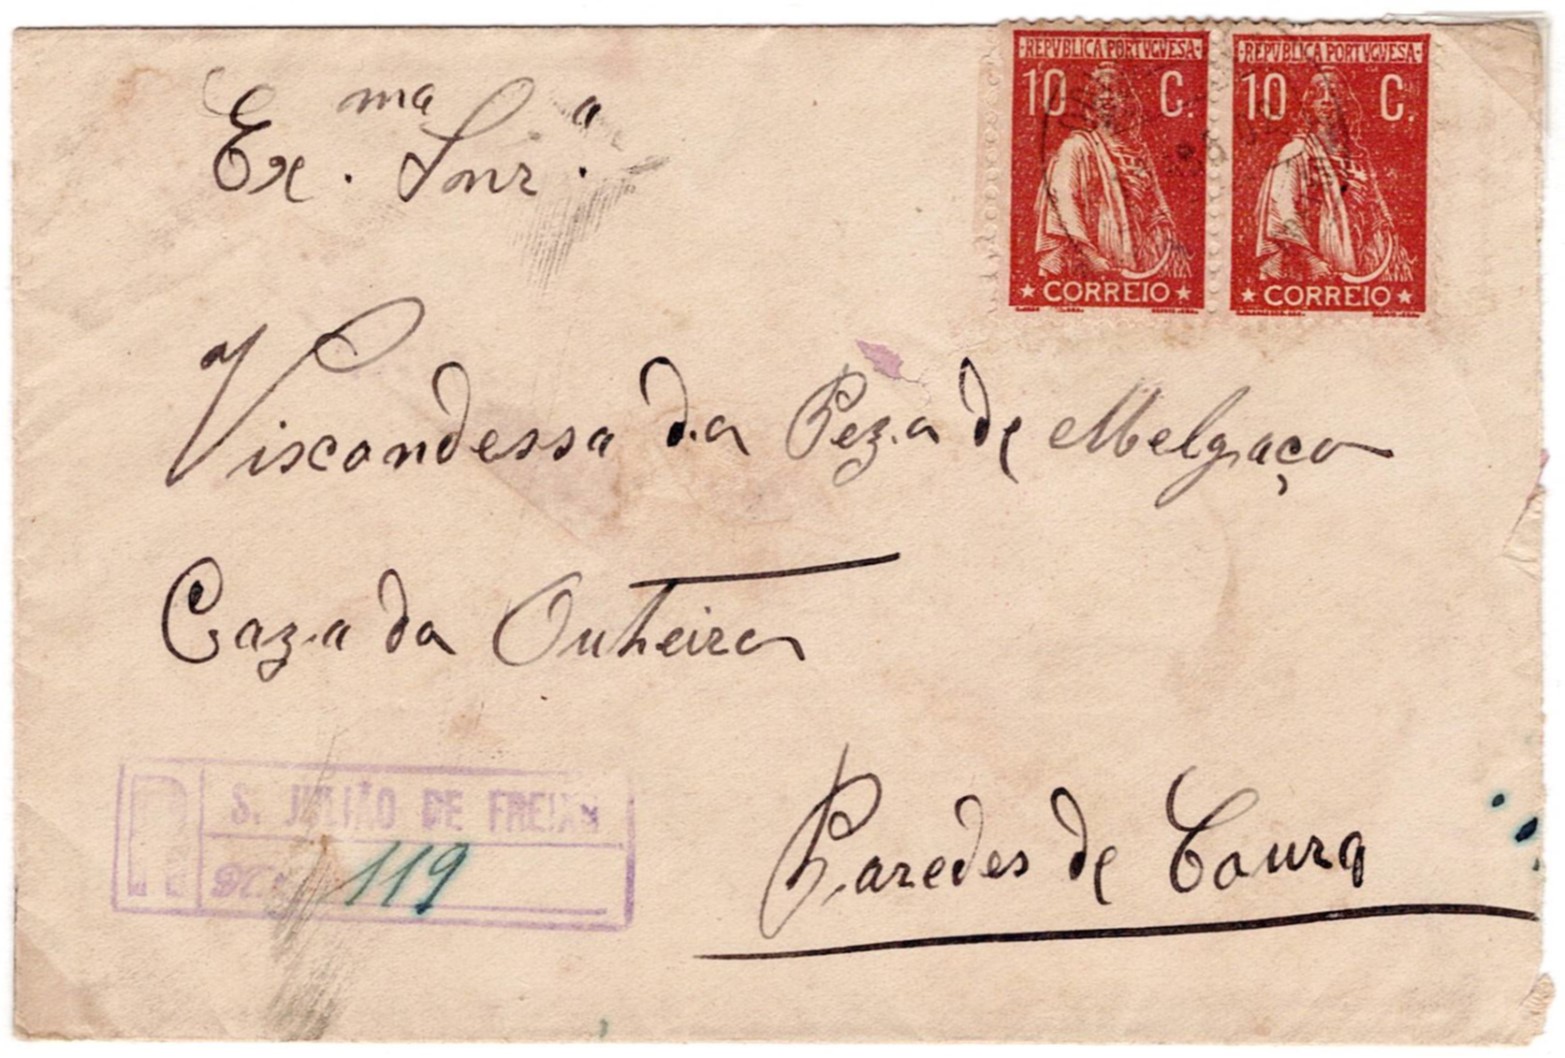 REPVBLICA PORTVGVESA
10 C.
CORREIO
REPVBLICA PORTVGVESA
10 C.
CORREIO
Ex.ma Snr.a
Viscondessa da Peza de Melgaço
Caza do Outeiro
Paredes de Coura
R
S. JULIÃO DE FREIXO
N.º 119